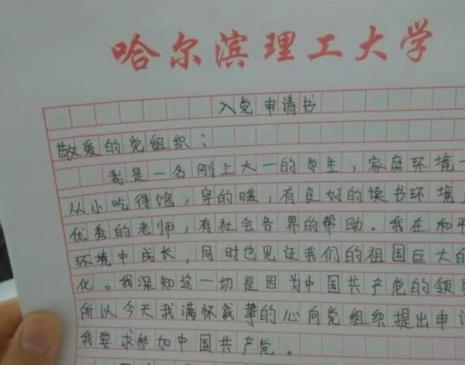 哈尔滨理工大学
入党申请书
敬爱的党组织:
我是一名刚上大一的学生,家庭环境一
从小吃得饱,穿的暖,有良好的读书环境,
优秀的老师,有社会各界的帮助。我在和平
环境中成长,同时也见证我们的祖国巨大的
化。我深知这一切是因为中国共产党的领
所以今天我满怀诚挚的心向党组织提出申
我要求参加中国共产党。